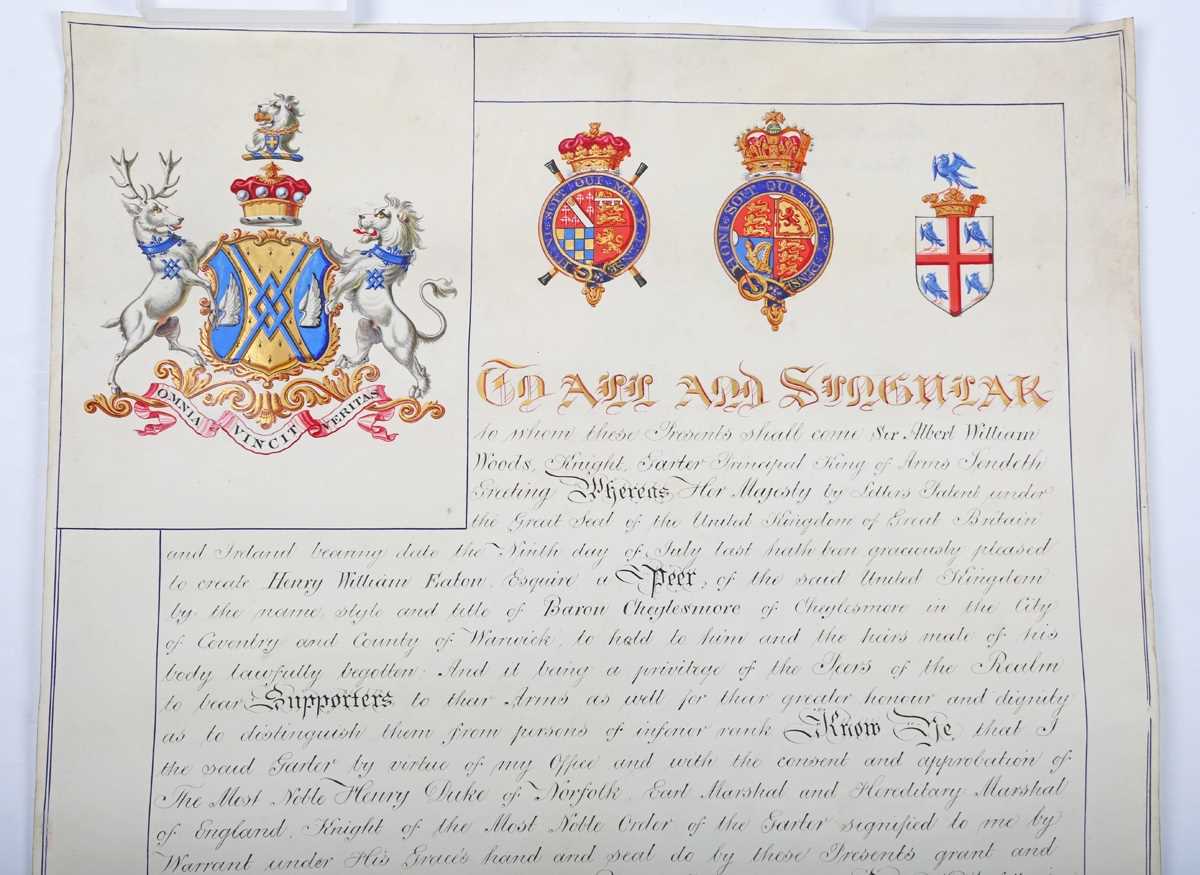 OMNIA VINCIT VERITAS
HONI SOIT QUI MAL Y PENSE
HONI SOIT QUI MAL Y PENSE
To All and Singular
to whom these Presents shall come Sir Albert William
Woods, Knight, Garter Principal King of Arms Sendeth
Greeting Whereas Her Majesty by Letters Patent under
the Great Seal of the United Kingdom of Great Britain
and Ireland bearing date the Ninth day of July last hath been graciously pleased
to create Henry William Eaton, Esquire a Peer, of the said United Kingdom
by the name, style and title of Baron Cheylesmore of Cheylesmore in the City
of Coventry and County of Warwick, to hold to him and the heirs male of his
body lawfully begotten. And it being a privilege of the Peers of the Realm
to bear Supporters to their Arms as well for their greater honour and dignity
as to distinguish them from persons of inferior rank Know Ye, that I
the said Garter by virtue of my Office and with the consent and approbation of
The Most Noble Henry Duke of Norfolk, Earl Marshal and Hereditary Marshal
of England, Knight of the Most Noble Order of the Garter signified to me by
Warrant under His Grace's hand and seal do by these Presents grant and